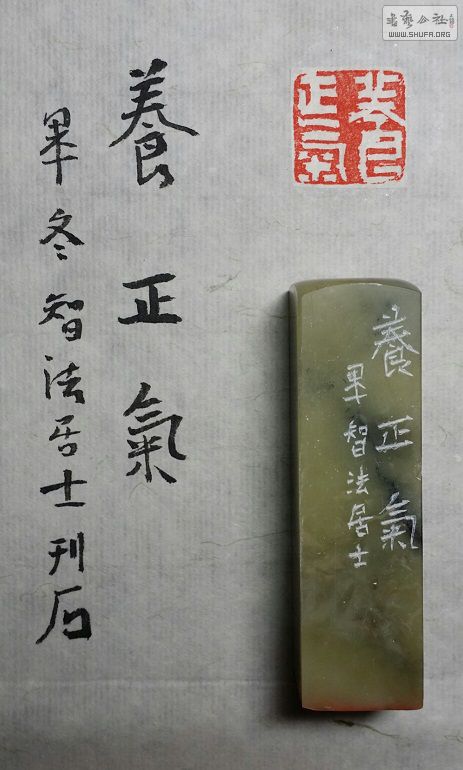 養正氣
甲午冬智法居士刊石
養正氣
養正氣
甲午智法居士
書藝公社
WWW.SHUFA.ORG